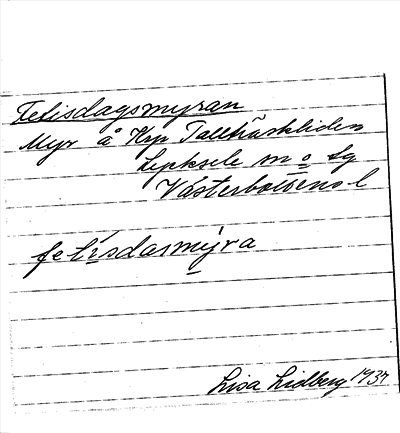 Tetisdagsmyran
Myr å Krp Tallträskliden
Lycksele m o lg
Västerbottens l
fetísdasmýra
Lisa Lidberg 1937